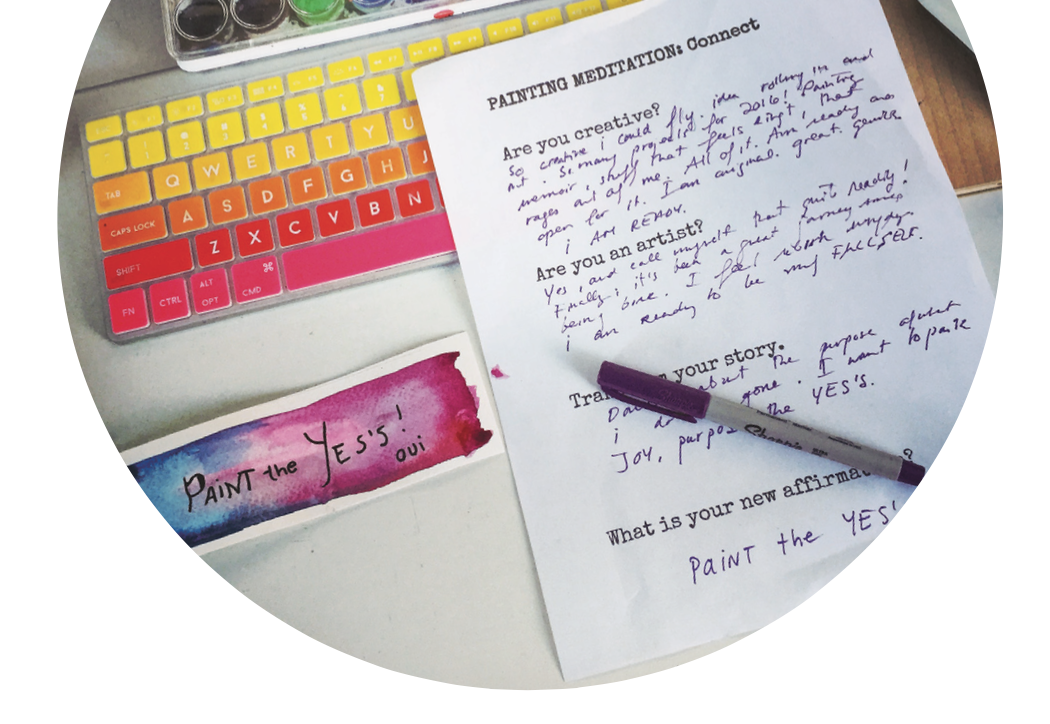 TAB Q W E R T Y U
CAPS LOCK A S D F G H J
SHIFT Z X C V B N
FN CTRL ALT OPT ⌘ CMD
PAINT the YES'S!
oui
PAINTING MEDITATION: Connect
Are you creative?
So creative i could fly. idea rolling in and
out. So many projects for 2016, Painting
memoir, stuff that feels right that
rages out of me. All of it. Am ready and
open for it. I am original. great. genius
i AM READY.
Are you an artist?
Yes, and call myself that quit readily!
Finally, it's been a great journey since
being bore. I feel
i am ready to be my FULL SELF.
your story.
about the purpose
i gone. I want to paint
Joy, the YES'S.
Sharpie
What is your new affirmat ?
PAINT the YES'